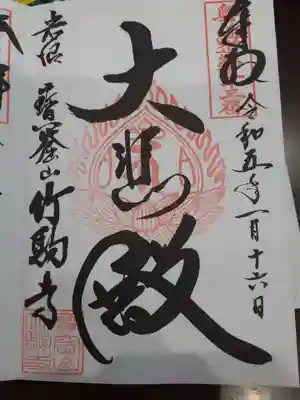 奉拝
令和五年一月十六日
大悲殿
岩沼
寳窟山竹駒寺